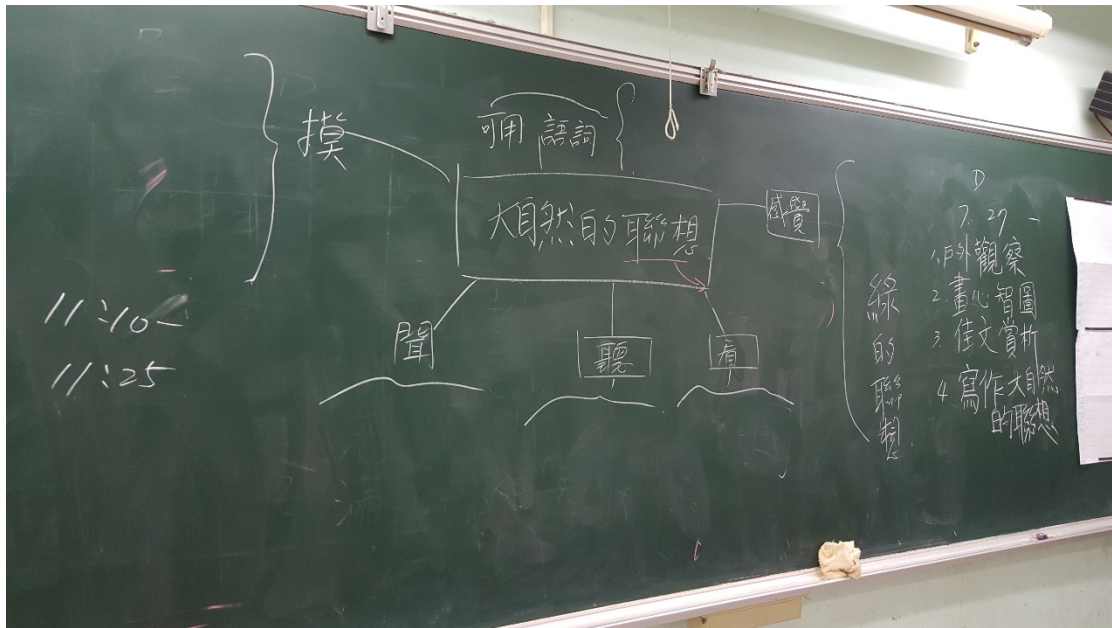 摸
可用 語詞
大自然的聯想
感覺
聞
聽
看
11:10-
11:25
綠的聯想
7.27
1.戶外觀察
2.畫心智圖
3.佳文賞析
4.寫作大自然
的聯想